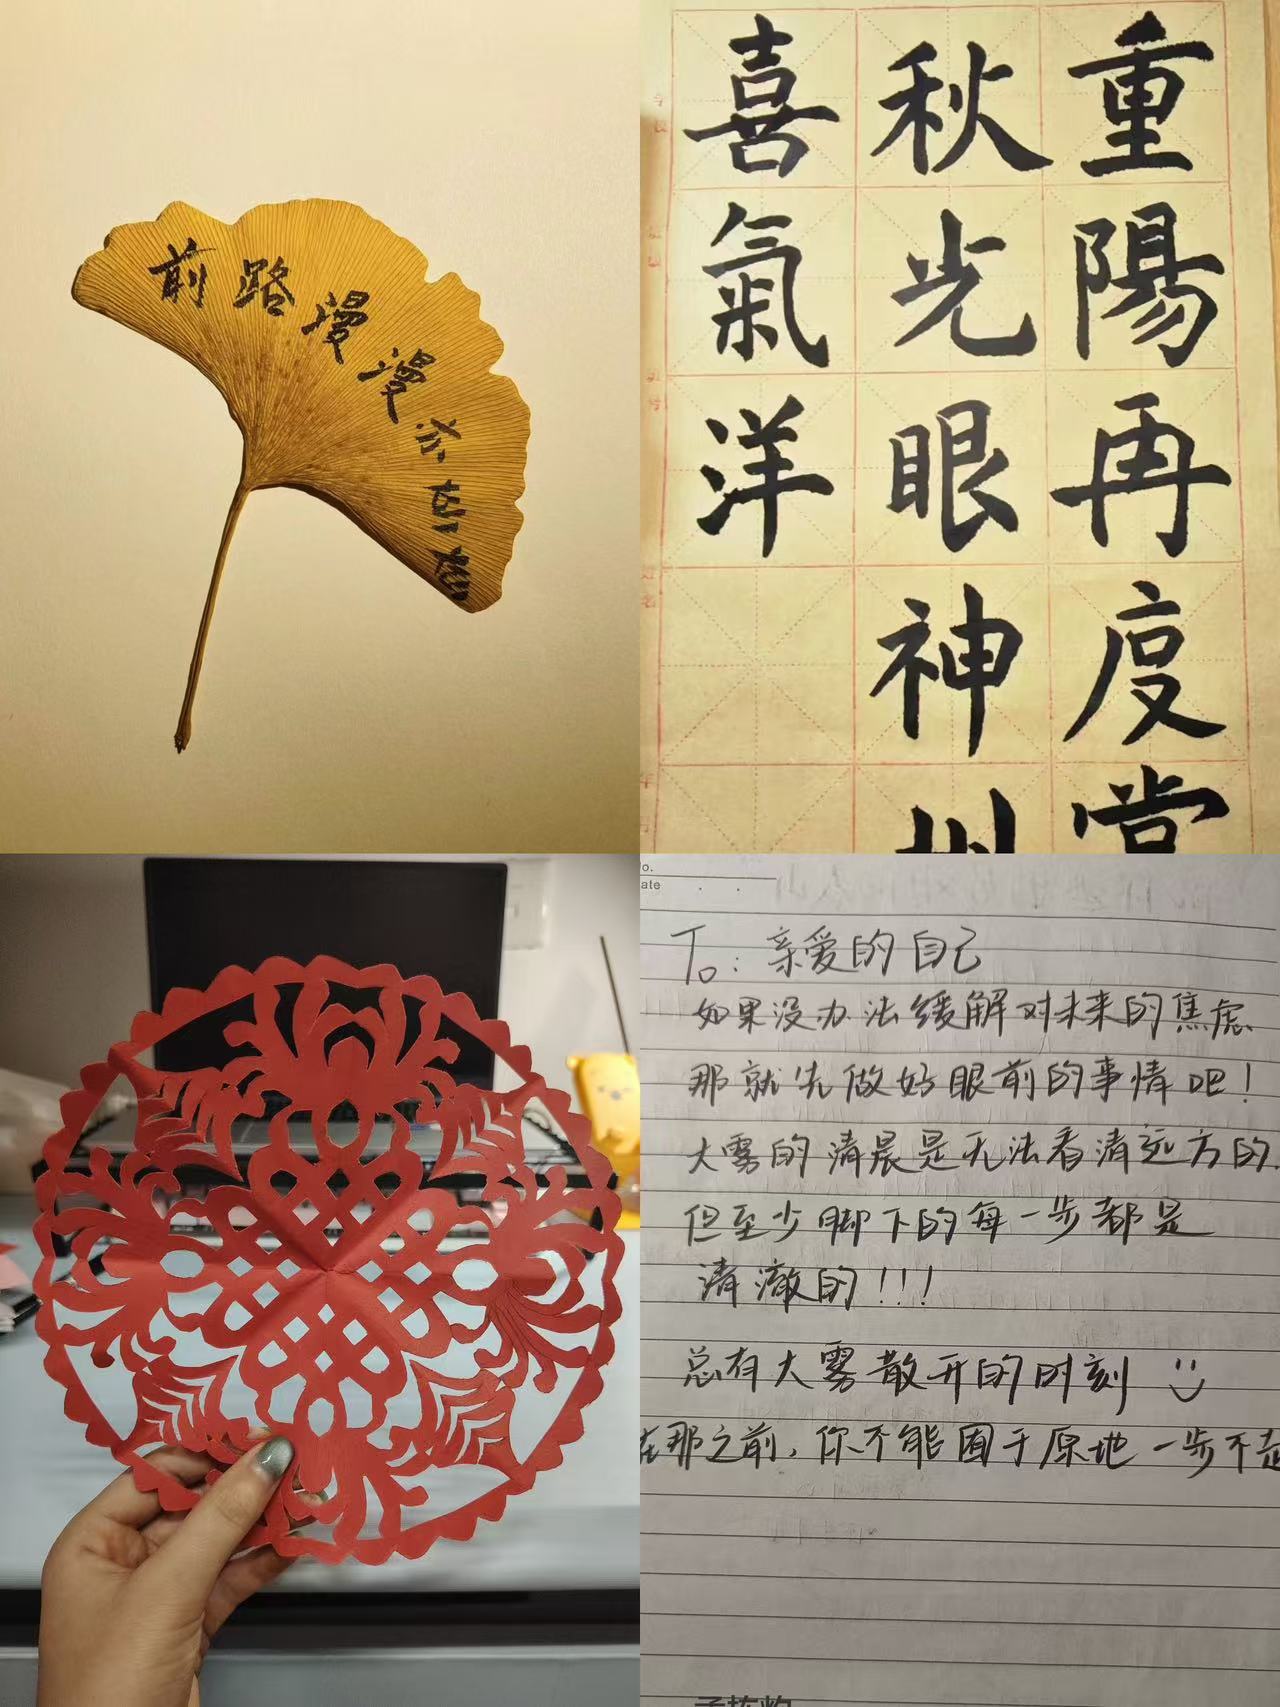 前路漫漫亦
重陽再度
秋光眼神
喜氣洋
o.
ate
To: 亲爱的自己
如果没办法缓解对未来的焦虑
那就先做好眼前的事情吧！
大雾的清晨是无法看清远方的.
但至少脚下的每一步都是
清澈的！！！
总有大雾散开的时刻
在那之前，你不能困于原地 一步不走